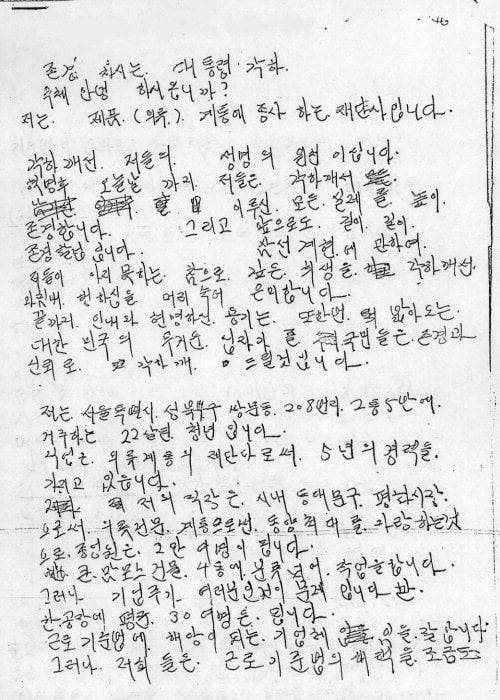 존경 하시는. 대통령 각하.
옥체 안녕 하시옵니까?
저는. 제품. (의류). 계통에 종사 하는. 재단사입니다.
각하께선. 저들의. 생명의 원선 이십니다.
혁명후 오늘날 까지. 저들은. 각하께서
이루신. 모든. 일에 를. 높이.
존경합니다. 그리고 앞으로도. 길이. 길이.
존경할겁니다. 삼선 개헌.에 관하여.
저들이 아지 못하는. 참으로. 깊은. 희생을. 각하께선
마침내. 행하심을. 머리 숙여 은미합니다.
끝까지. 인내와 현명하신. 용기는. 또한번. 밝아오는.
대한 민국의 무거운. 십자가 를 국민들은. 존경과
신뢰로. 각하께. 드릴것입니다.
저는. 서울특별시. 성북구 쌍문동. 208번지. 2통 5반에.
거주하는 22살된. 청년입니다.
직업은. 의류계통의 재단사로써. 5년의 경력을.
가지고 있습니다.
저의 직장은. 시내 동대문구. 평화시장.
으로써. 의류전문. 계통으로썬. 동양 최대를. 자랑하는것
으로. 종업원은. 2만 여명이 됩니다.
큰. 맟모스 건물. 4동에 분류되어. 작업을합니다.
그러나 기업주가 여러분인것이 문제 입니다만.
한공장에 평균. 30여명은. 됩니다.
근로 기준법에. 해당이 되는. 기업체 임을. 잘 압니다.
그러나. 저희 들은. 근로기준법의 혜택을. 조금도